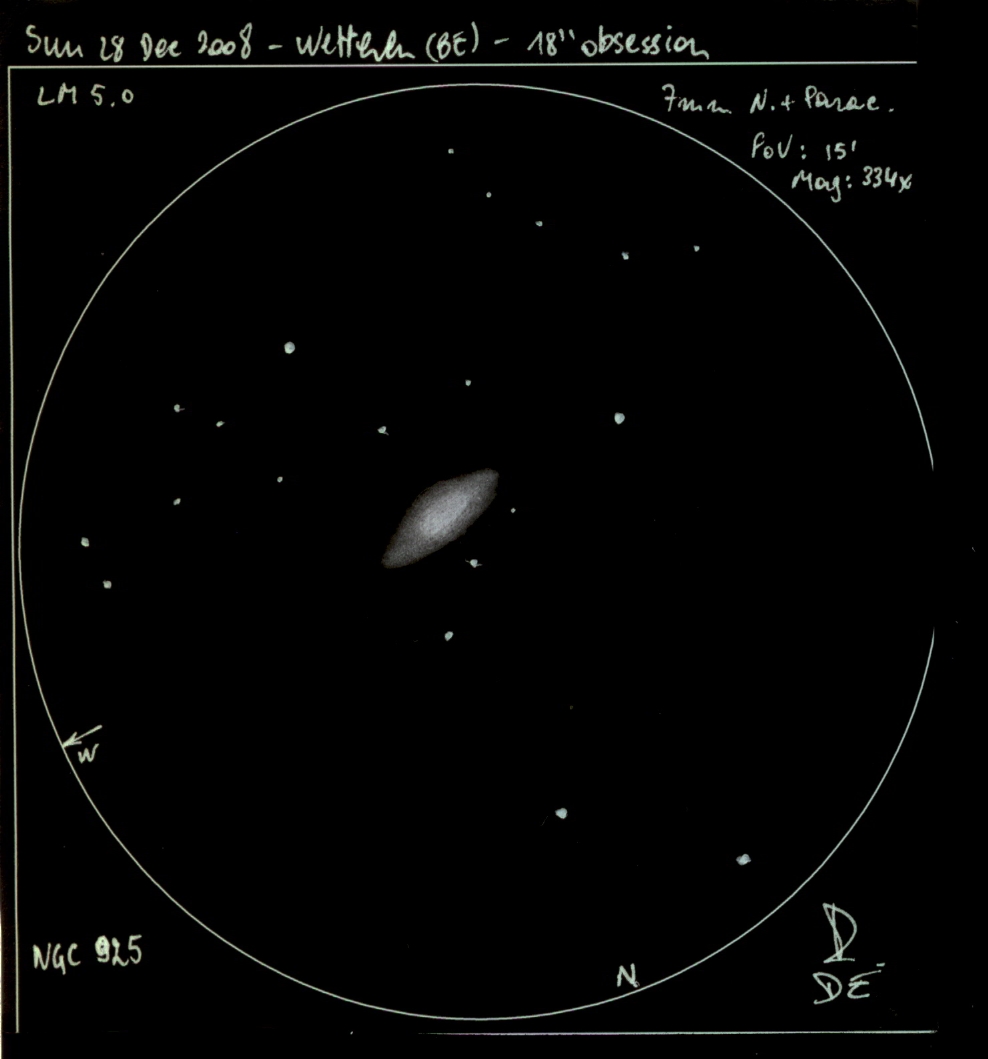 Sun 28 Dec 2008 - Wetteren (BE) - 18" obsession
LM 5.0
7mm N. + Parac.
FoV: 15'
Mag: 334x
W
NGC 925
N
DE